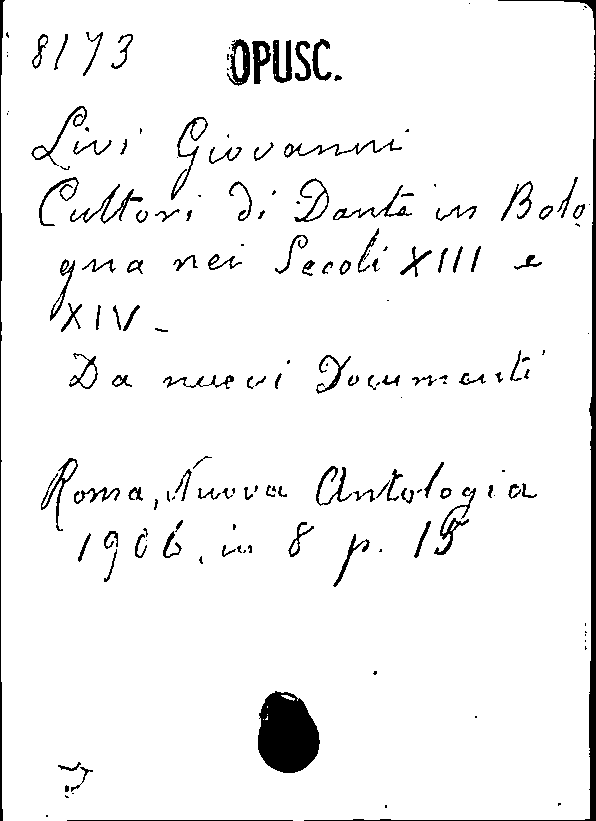 8173 OPUSC.
Livi Giovanni
Cultori di Dante in Bolo
gna nei Secoli XIII e
XIV -
Da nuovi Documenti
Roma, Nuova Antologia
1906, in 8 p. 15